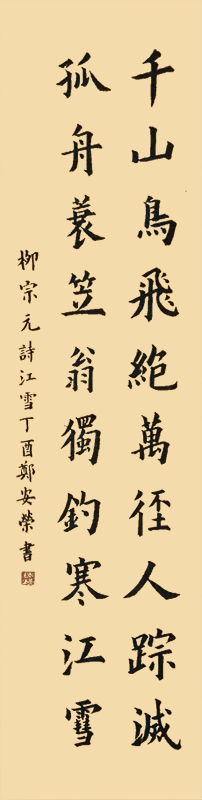 千山鳥飛絕萬徑人踪滅
孤舟蓑笠翁獨釣寒江雪
柳宗元詩江雪丁酉鄭安榮書